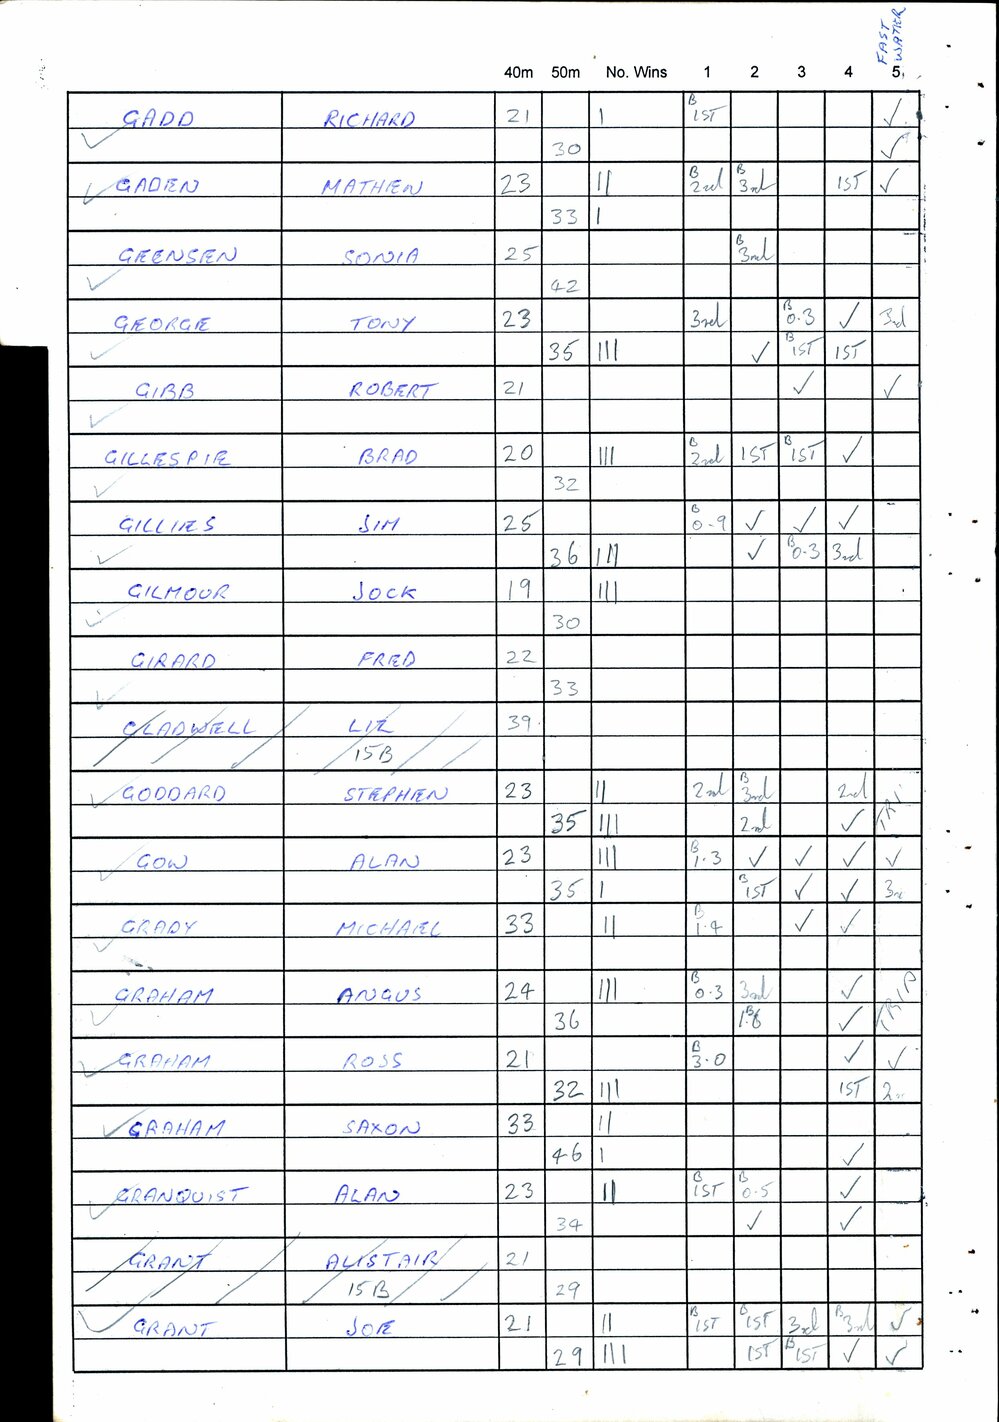 FAST
WATER
40m 50m No. Wins 1 2 3 4 5
GADD RICHARD 21 | B 1ST ✓
✓ 30 ✓
✓ GADEN MATHEW 23 || B 2nd B 3rd 1ST ✓
33 |
GEENSEN SONIA 25 B 3rd
✓ 42
GEORGE TONY 23 3rd B 0.3 ✓ 3rd
✓ 35 ||| ✓ B 1ST 1ST
GIBB ROBERT 21 ✓ ✓
✓
GILLESPIE BRAD 20 ||| B 2nd 1ST B 1ST ✓
✓ 32
GILLIES JIM 25 B 0.9 ✓ ✓ ✓
✓ 36 ||| ✓ B 0.3 3rd
GILMOUR JOCK 19 |||
✓ 30
GIRARD FRED 22
✓ 33
GLADWELL LIZ 39
15B
✓ GODDARD STEPHEN 23 || 2nd B 3rd 2nd
35 ||| 2nd ✓ TRIP
✓ GOW ALAN 23 ||| B 1.3 ✓ ✓ ✓ ✓
35 | B 1ST ✓ ✓ 3rd
GRADY MICHAEL 33 || B 1.4 ✓ ✓
✓
GRAHAM ANGUS 24 ||| B 0.3 3rd ✓ TRIP
✓ 36 B ✓
✓ GRAHAM ROSS 21 B 3.0 ✓ ✓
32 ||| 1ST 2nd
✓ GRAHAM SAXON 33 ||
46 | ✓
✓ GRANQUIST ALAN 23 || B 1ST B 0.5 ✓
34 ✓ ✓
GRANT ALISTAIR 21
15B 29
✓ GRANT JOE 21 || B 1ST B 1ST 3rd B 3rd ✓
29 ||| 1ST B 1ST ✓ ✓